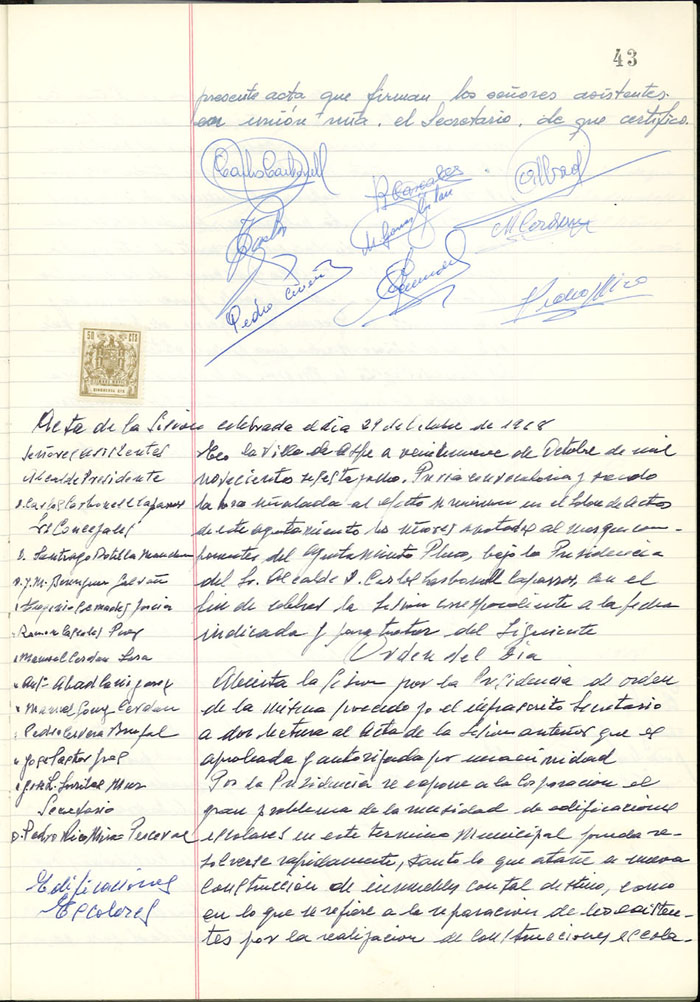 43
presente acta que firman los señores asistentes.
en unión mia. el Secretario. de que certifico.
Carlos Carbonell
R Canales
M. Cerdan
Pedro Cerver
Pedro Mira
50 CTS
Acta de la Sesion celebrada el dia 29 de Octubre de 1968
Señores asistentes
Alcalde Presidente
D. Carlos Carbonell Caparros
Los Concejales
D. Santiago Botella
Eugenio Canales Garcia
Ramon Canales Perez
Manuel Cerdan
Antº Abad
Manuel Gonz Cerdan
Pedro Cervera
Jose Pastor
Jose L.
Secretario
D. Pedro Rico Mira Perceval
Edificaciones
Escolares
En la Villa de Aspe a veintinueve de Octubre de mil
novecientos sesenta y ocho. Previa convocatoria y siendo
la hora señalada al efecto se reunieron en el Salon de Actos
de este Ayuntamiento los señores anotados al margen com-
ponentes del Ayuntamiento Pleno, bajo la Presidencia
del Sr. Alcalde D. Carlos Carbonell Caparros, con el
fin de celebrar la Sesion correspondiente a la fecha
indicada y para tratar del siguiente
Orden del Dia
Abierta la Sesion por la Presidencia de orden
de la misma procedo yo el infrascrito Secretario
a dar lectura al Acta de la Sesion anterior que es
aprobada y autorizada por unanimidad
Por la Presidencia se expone a la Corporacion el
gran problema de la necesidad de edificaciones
escolares en este termino Municipal pueda re-
solverse rapidamente, tanto lo que atañe a nueva
construccion de inmuebles con tal destino, como
en lo que se refiere a la reparacion de los existen-
tes por la realizacion de construcciones escola-